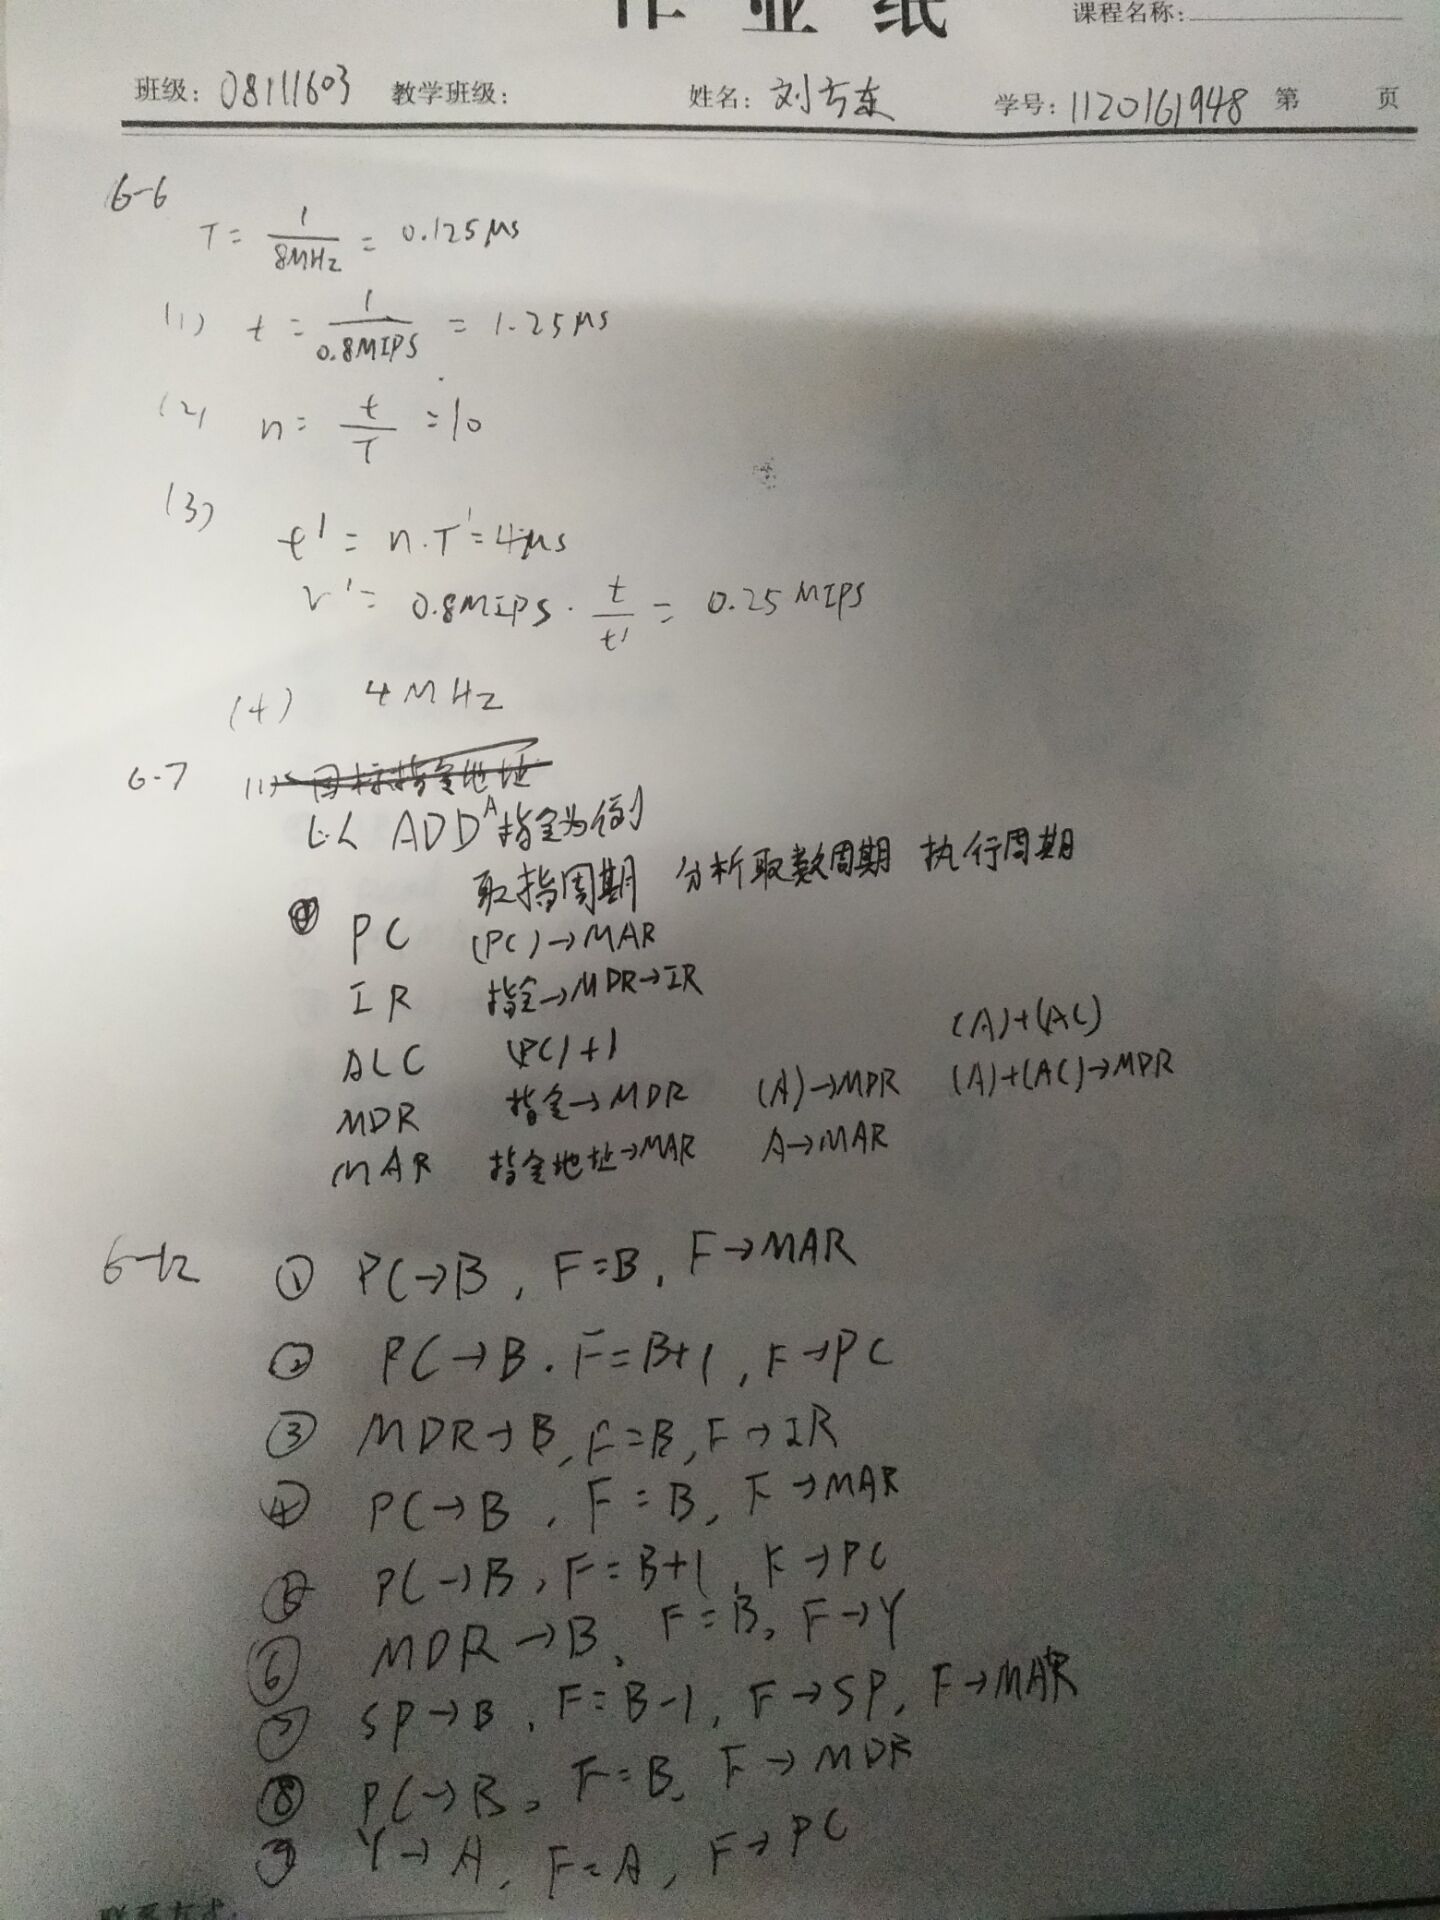 作 业 纸
课程名称:
班级: 08111603 教学班级: 姓名: 刘方东 学号: 1120161948 第 页
6-6
T = 1/8MHz = 0.125μs
(1) t = 1/0.8MIPS = 1.25μs
(2) n = t/T = 10
(3)
t' = n·T' = 4μs
v' = 0.8MIPS · t/t' = 0.25 MIPS
(4) 4MHz
6-7 (1)
以 ADD A 指令为例
取指周期 分析取数周期 执行周期
PC (PC)→MAR
IR 指令→MDR→IR
ALC (PC)+1 (A)+(AC)
MDR 指令→MDR (A)→MDR (A)+(AC)→MDR
MAR 指令地址→MAR A→MAR
6-12 ① PC→B, F=B, F→MAR
② PC→B. F=B+1, F→PC
③ MDR→B, F=B, F→IR
④ PC→B, F=B, F→MAR
⑤ PC→B, F=B+1, F→PC
⑥ MDR→B, F=B, F→Y
⑦ SP→B, F=B-1, F→SP, F→MAR
⑧ PC→B, F=B, F→MDR
⑨ Y→A, F=A, F→PC
联系方式: